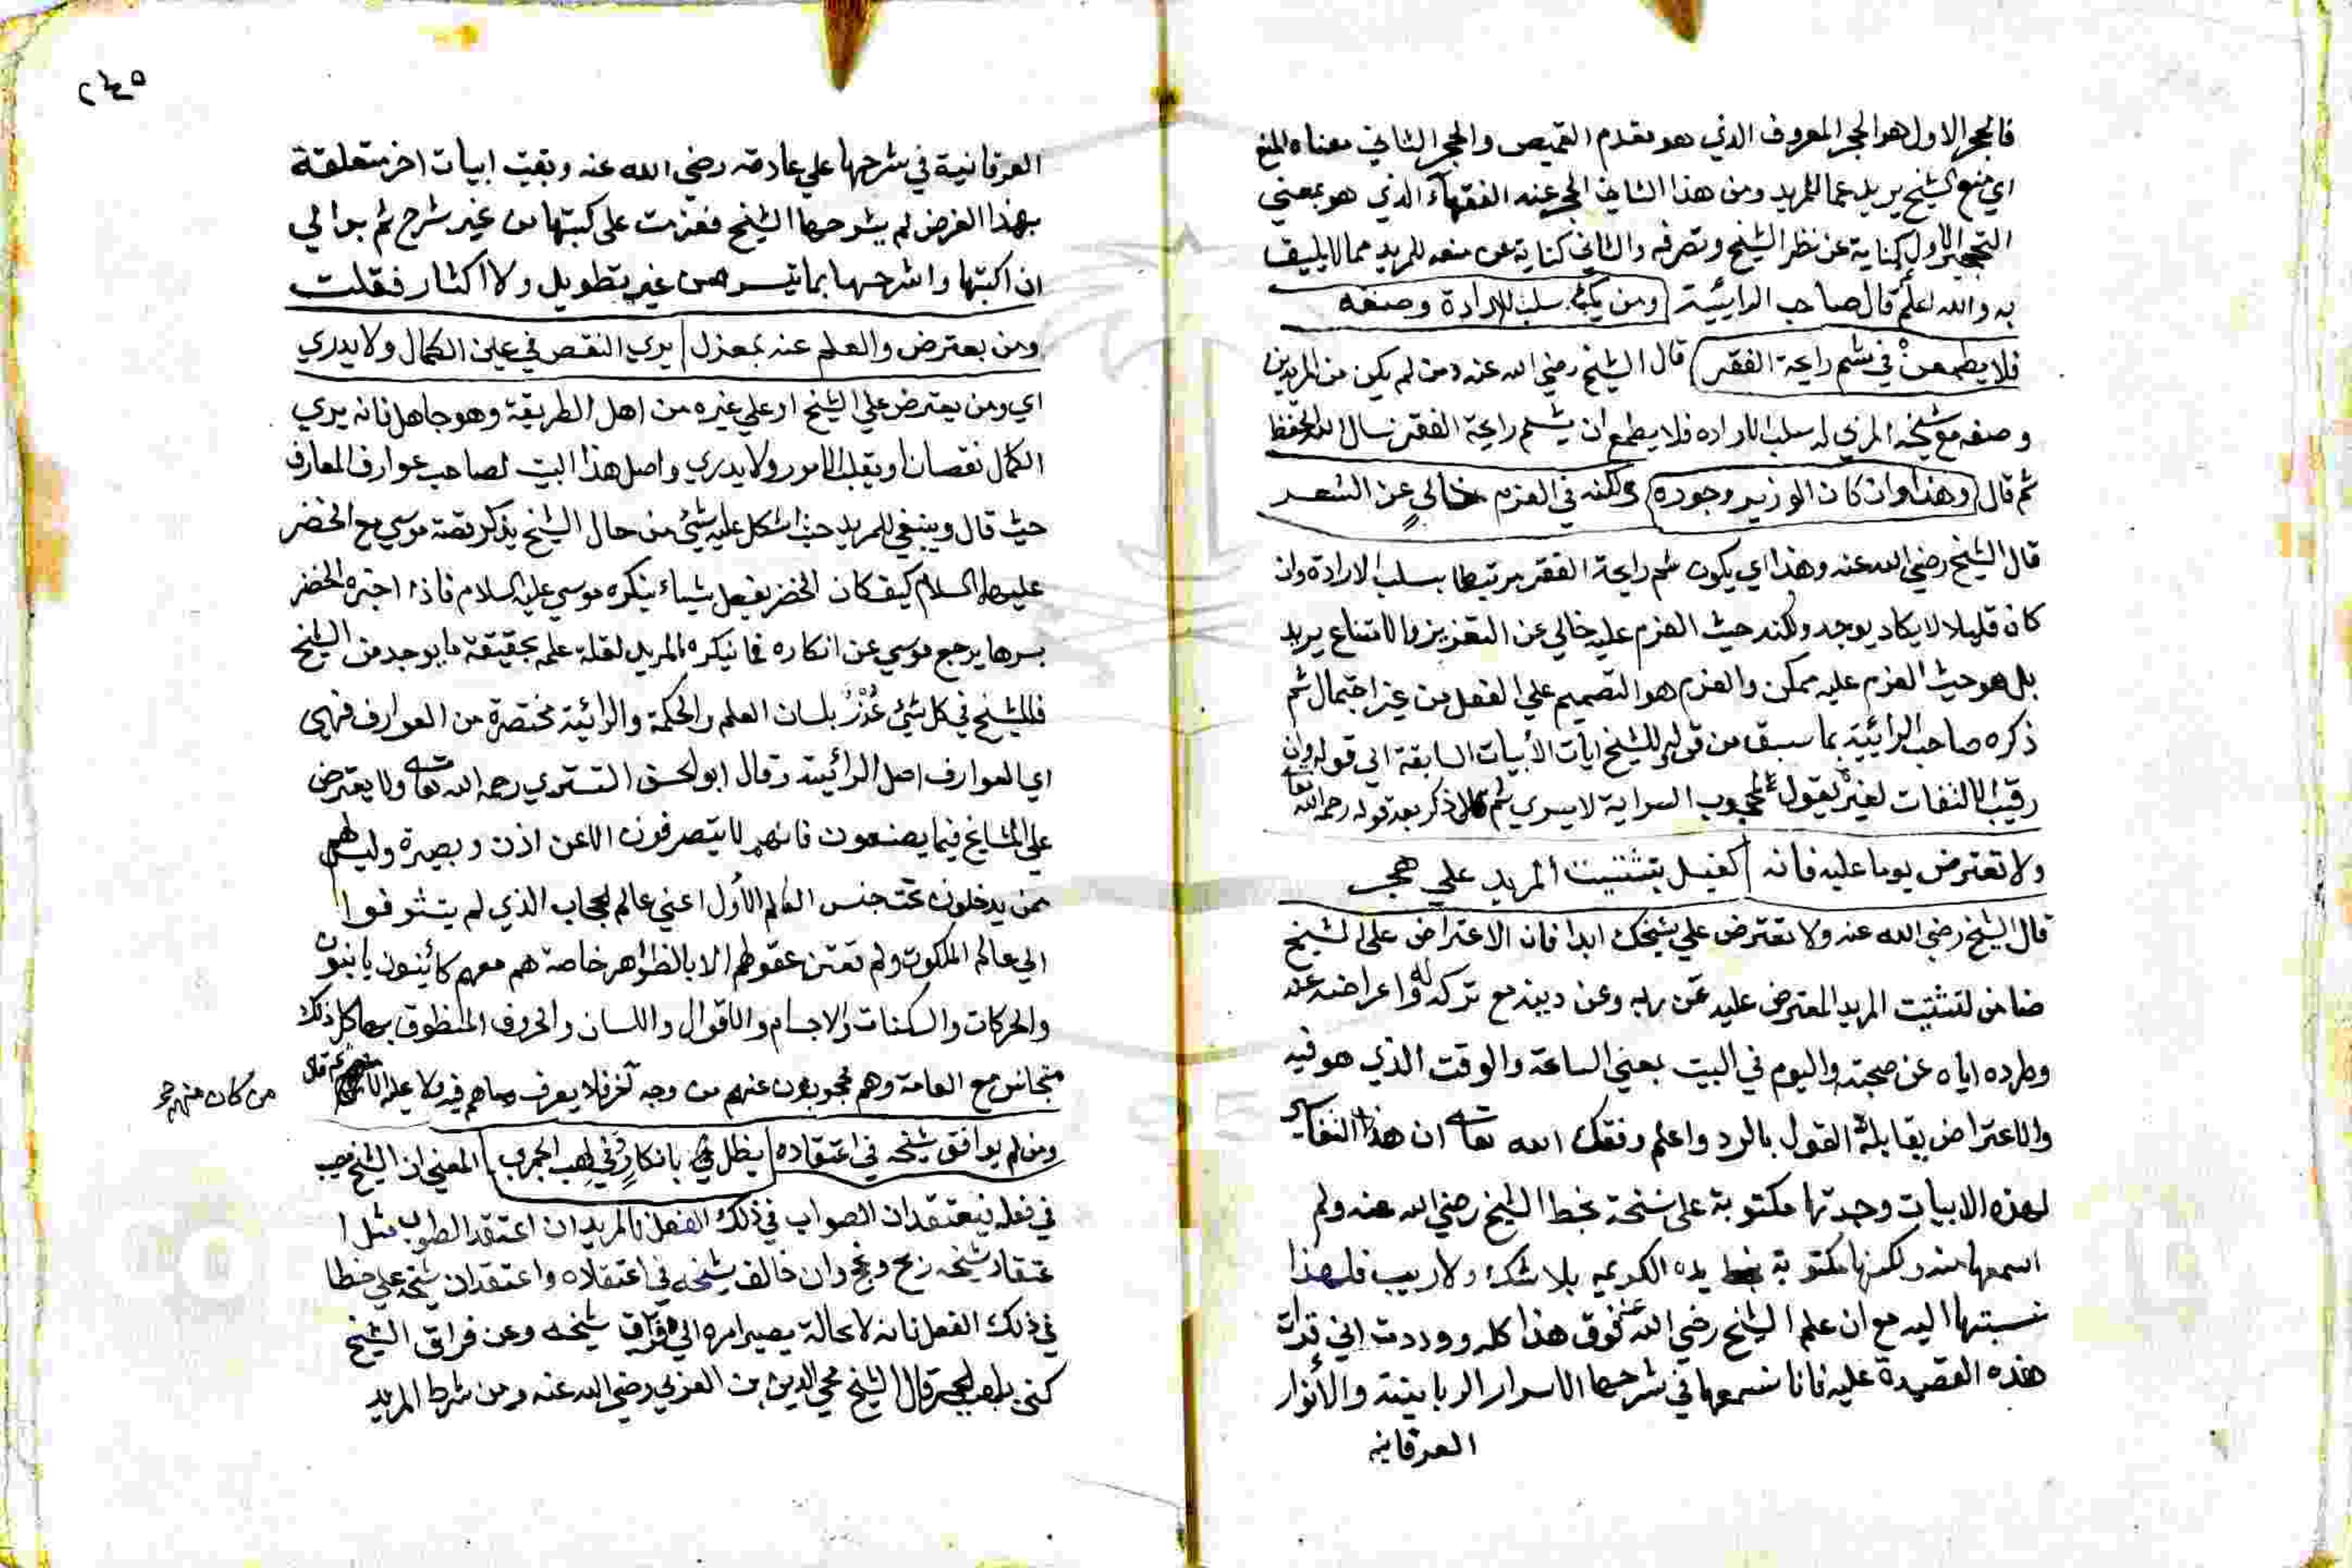 فالحجر الاول هو الحجر المعروف الذي هو مقدم القميص والحجر الثاني معناه المنع
اي منع الشيخ يريد عما للمريد ومن هذا الثاني الحجر عند الفقهآء الذي هو بمعني
التحجير الاول كناية عن نظر الشيخ وتصرفه والثاني كناية عن منعه للمريد مما لا يليق
به والله اعلم قال صاحب الرايئية ومن يكن سلب الارادة وصفه
فلا يطمعنْ في شم رايحة الفقر قال الشيخ رضي الله عنه ومن لم يكن من المريدين
وصفه مع شيخه المربي له سلب الاراده فلا يطمع ان يشم رايحة الفقر نسال الله الحفظ
ثم قال وهذا وان كان العزيز وجوده ولكنه في العزم خاليٍ عن الشعر
قال الشيخ رضي الله عنه وهذا اي يكون شم رايحة الفقر مرتبطا بسلب الارادة وان
كان قليلا لا يكاد يوجد ولكنه حيث العزم عليه خالي عن التعزيز والامتناع يريد
بل هو حيث العزم عليه ممكن والعزم هو التصميم علي الفعل من غير احتمال ثم
ذكره صاحب الرائيية بما سبق من قوله للشيخ ايات الأبيات السابقة الي قوله وان
رقيب الالتفات لغيره يقول لمحبوب السراية لا يسري ثم ذكر بعد قوله رحمه الله تعا
ولا تعترض يوما عليه فانه كفيل بتشتيت المريد علي هجر
قال الشيخ رضي الله عنه ولا تعترض علي شيخك ابدا فان الاعتراض علي الشيخ
ضامن لتشتيت المريد المعترض عليه عن ربه وعن دينه مع تركه له واعراضه عنه
وطرده اياه عن صحبته واليوم في البيت بمعني الساعة والوقت الذي هو فيه
والاعتراض مقابلة القول بالرد واعلم وفقك الله تعا ان هذا التفاسير
لهذه الابيات وجدتها مكتوبة علي نسخة بخط الشيخ رضي الله عنه ولم
اسمعها منه ولكنها مكتوبة يده الكريمه بلا شك ولا ريب فلهذا
نسبتها اليه مع ان علم الشيخ رضي الله عنه فوق هذا كله ووددت اني قرات
هذه القصيدة عليه فانا نسمعها في شرحها الاسرار الربانية والأنوار
العرفانيه
٢٤٥
العرفانية في شرحها علي عادته رضي الله عنه وبقيت ابيات اخر متعلقة
بهذا الغرض لم يشرحها الشيخ فعزمت علي كتبتها من غير شرح ثم بدا لي
ان اكتبها واشرحها بما تيسر من غير تطويل ولا اكثار فقلت
ومن يعترض والعلم عنه بمعزل يري النقص في عين الكمال ولا يدري
اي ومن يعترض علي الشيخ او علي غيره من اهل الطريقة وهو جاهل فانه يري
الكمال نقصانا ويقلب الامور ولا يدري واصل هذا البيت لصاحب عوارف المعارف
حيث قال وينبغي للمريد حيث اشكل عليه شيئ من حال الشيخ يذكر قصة موسي مع الخضر
عليهما السلام كيف كان الخضر يفعل شيياء ينكره موسي عليه السلام فاذا اخبره الخضر
بسرها يرجع موسي عن انكاره فما ينكره المريد لقلة علمه بحقيقة ما يوجد من الشيخ
فللشيخ في كل شيئ عُذْرٌ بلسان العلم والحكمة والرائية مختصرة من العوارف فهي
اي العوارف اصل الرائية وقال ابو الحسن التستري رحمه الله تعا ولا يعترض
علي المشايخ فيما يصنعون فانهم لا يتصرفون الا عن اذن وبصيرة وليسوا هم
ممن يدخلون تحت جنس العالم الأول اعني عالم الحجاب الذي لم يتشوفوا
الي عالم الملكوت ولم تقترن عقولهم الا بالظواهر خاصة هم معهم كائنون باينون
والحركات والسكنات والاجسام والاقوال واللسان والحروف المنطوق بها كل ذلك
متجانس مع العامة وهم محجوبون عنهم من وجه آخر فلا يعرف ما هم فيه ولا يعلمه الا ثم قال
من كان منهم
ومن لم يوافق شيخه في اعتقاده يظل من الانكار في لهب الجمر المعني ان الشيخ مصيب
في فعله فيعتقد ان الصواب في ذلك الفعل فالمريد ان اعتقد الصواب مثل ا
عتقاد شيخه ربح ونجح وان خالف شيخه في اعتقاده واعتقد ان شيخه علي خطا
في ذلك الفعل فانه لا محالة يصير امره الي فراق شيخه وعن فراق الشيخ
كني بلهب الجمر قال الشيخ محي الدين بن العربي رضي الله عنه ومن شرط المريد